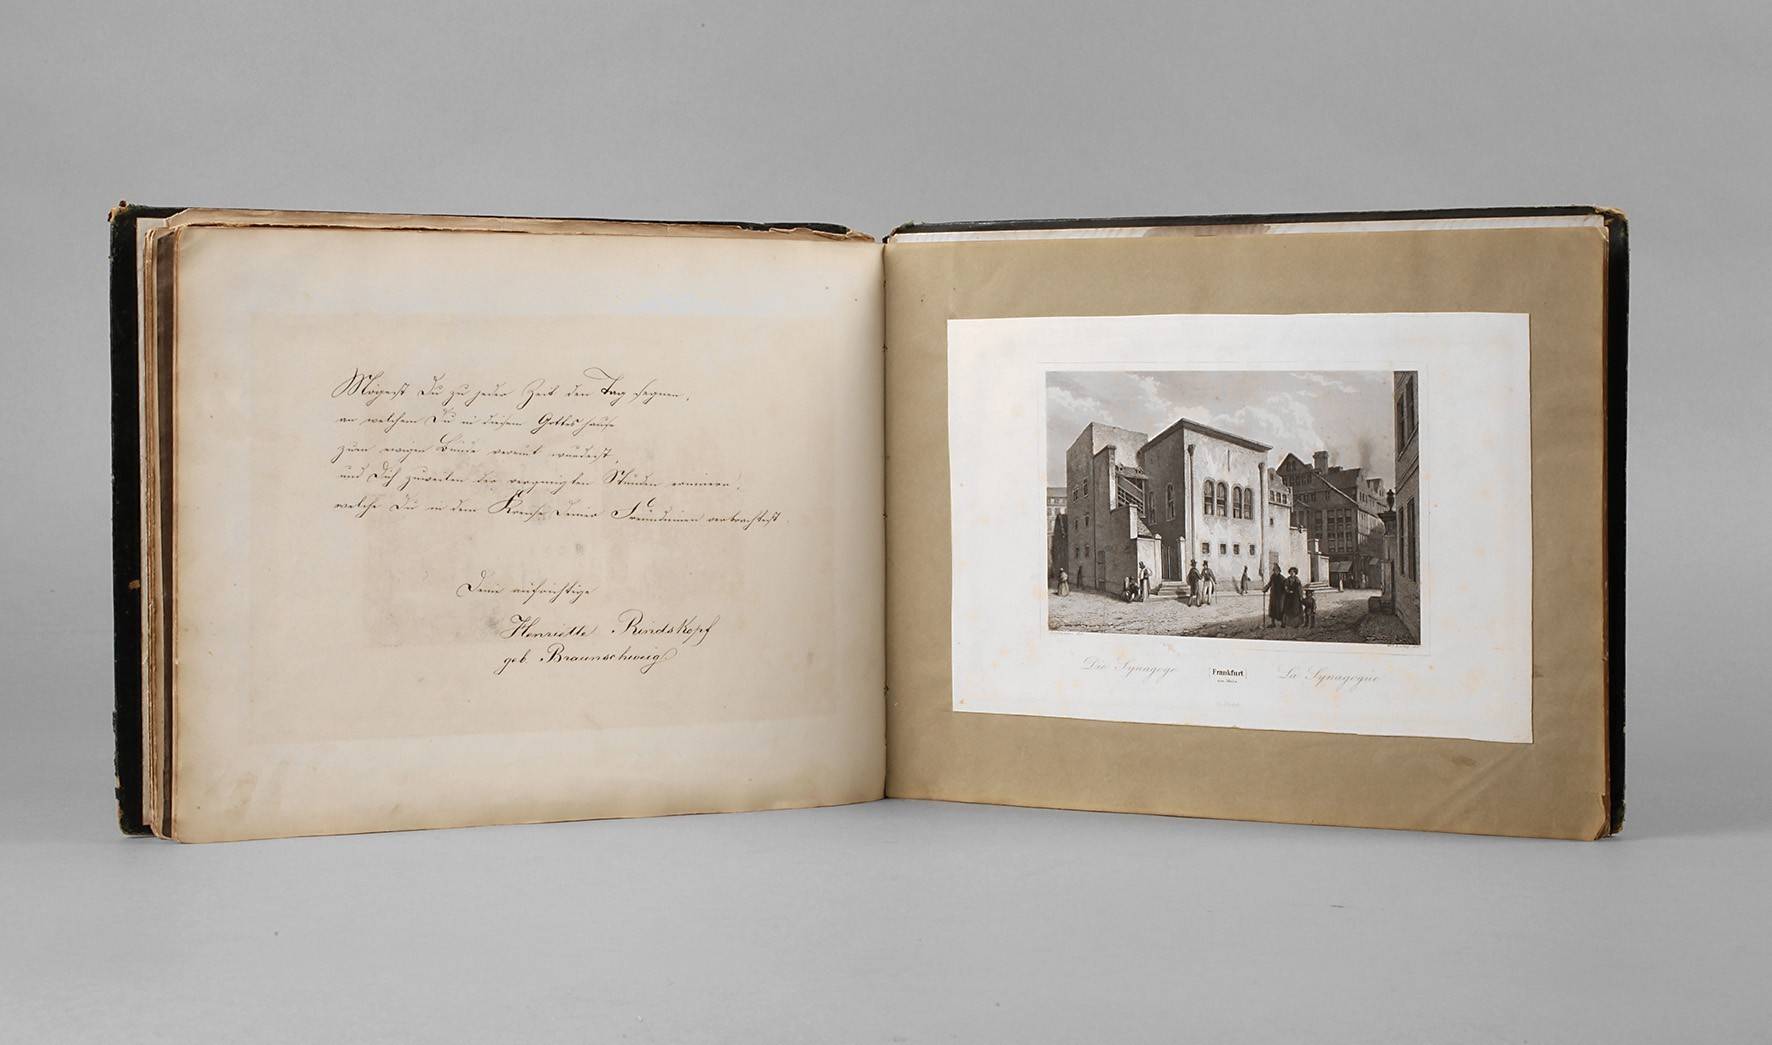 Mögest Du zu jeder Zeit den Tag segnen,
an welchem Du in diesem Gotteshause
zum ewigen Bunde vereint wurdest,
und Dich zuweilen der vergnügten Stunden erinnern,
welche Du in dem Kreise Deiner Freundinnen verbrachtest.
Deine aufrichtige
Henriette Rindskopf
geb. Braunschweig
Die Synagoge
Frankfurt
am Main
La Synagogue